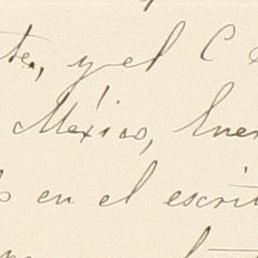 te, y el C
México, Ener
en el escrit